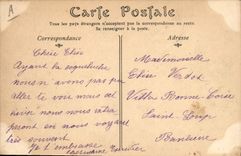 A
Carte Postale
Tous les pays étrangers n'acceptent pas la correspondance au recto.
Se renseigner à la poste.
Correspondance
Chère Elise
Ayant la coqueluche
nous n'avons pas pu
aller te voir mais cet
hiver nous nous
nous voyant
très souvent
Je t'embrasse
Adresse
Mademoiselle
Elise
Villa Bonne
Saint-Loup
Banlieue